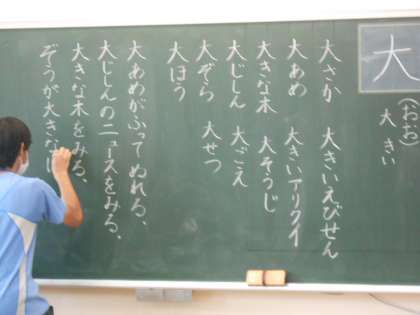 大
(おお)
大きい
大さか 大きいえびせん
大あめ 大きいアリクイ
大きな木 大そうじ
大じしん 大ごえ
大ぞら 大せつ
大ほう
大あめがふってぬれる、
大じしんのニュースをみる、
大きな木をみる、
ぞうが大きな